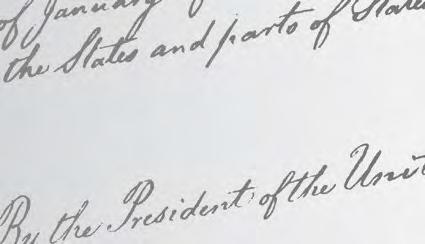 of January
the States and parts of State
By the President of the Unit